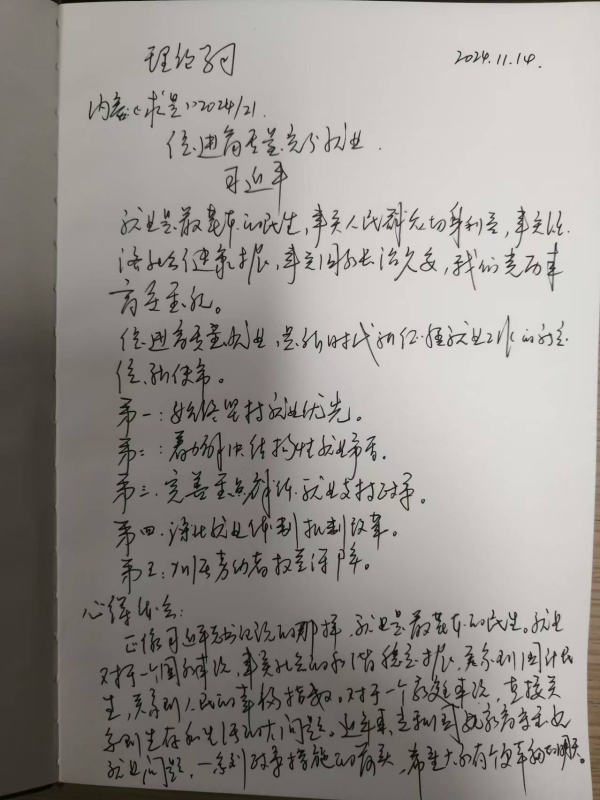 理论学习 2024.11.14.
内容《求是》2024/21.
促进高质量充分就业.
习近平
就业是最基本的民生,事关人民群众切身利益,事关经
济社会健康发展,事关国家长治久安,我们党历来
高度重视。
促进高质量就业,是新时代新征程就业工作的新定
位、新使命。
第一:始终坚持就业优先。
第二:着力解决结构性就业矛盾.
第三.完善重点群体就业支持政策。
第四.深化就业体制机制改革。
第五:加强劳动者权益保障。
心得体会:
正像习近平总书记说的那样,就业是最基本的民生。就业
对于一个国家来说,事关社会的和谐稳定发展,关系到国计民
生,关系到人民的幸福指数。对于一个家庭来说,直接关
系到生存和生活的大问题。近年来,
就业问题,一系列政策措施的